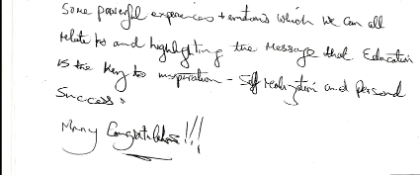 Some powerful experiences + emotions which we can all
relate to and highlighting the message that Education
is the key to inspiration - Self realization and personal
Success.
Many Congratulations!!!